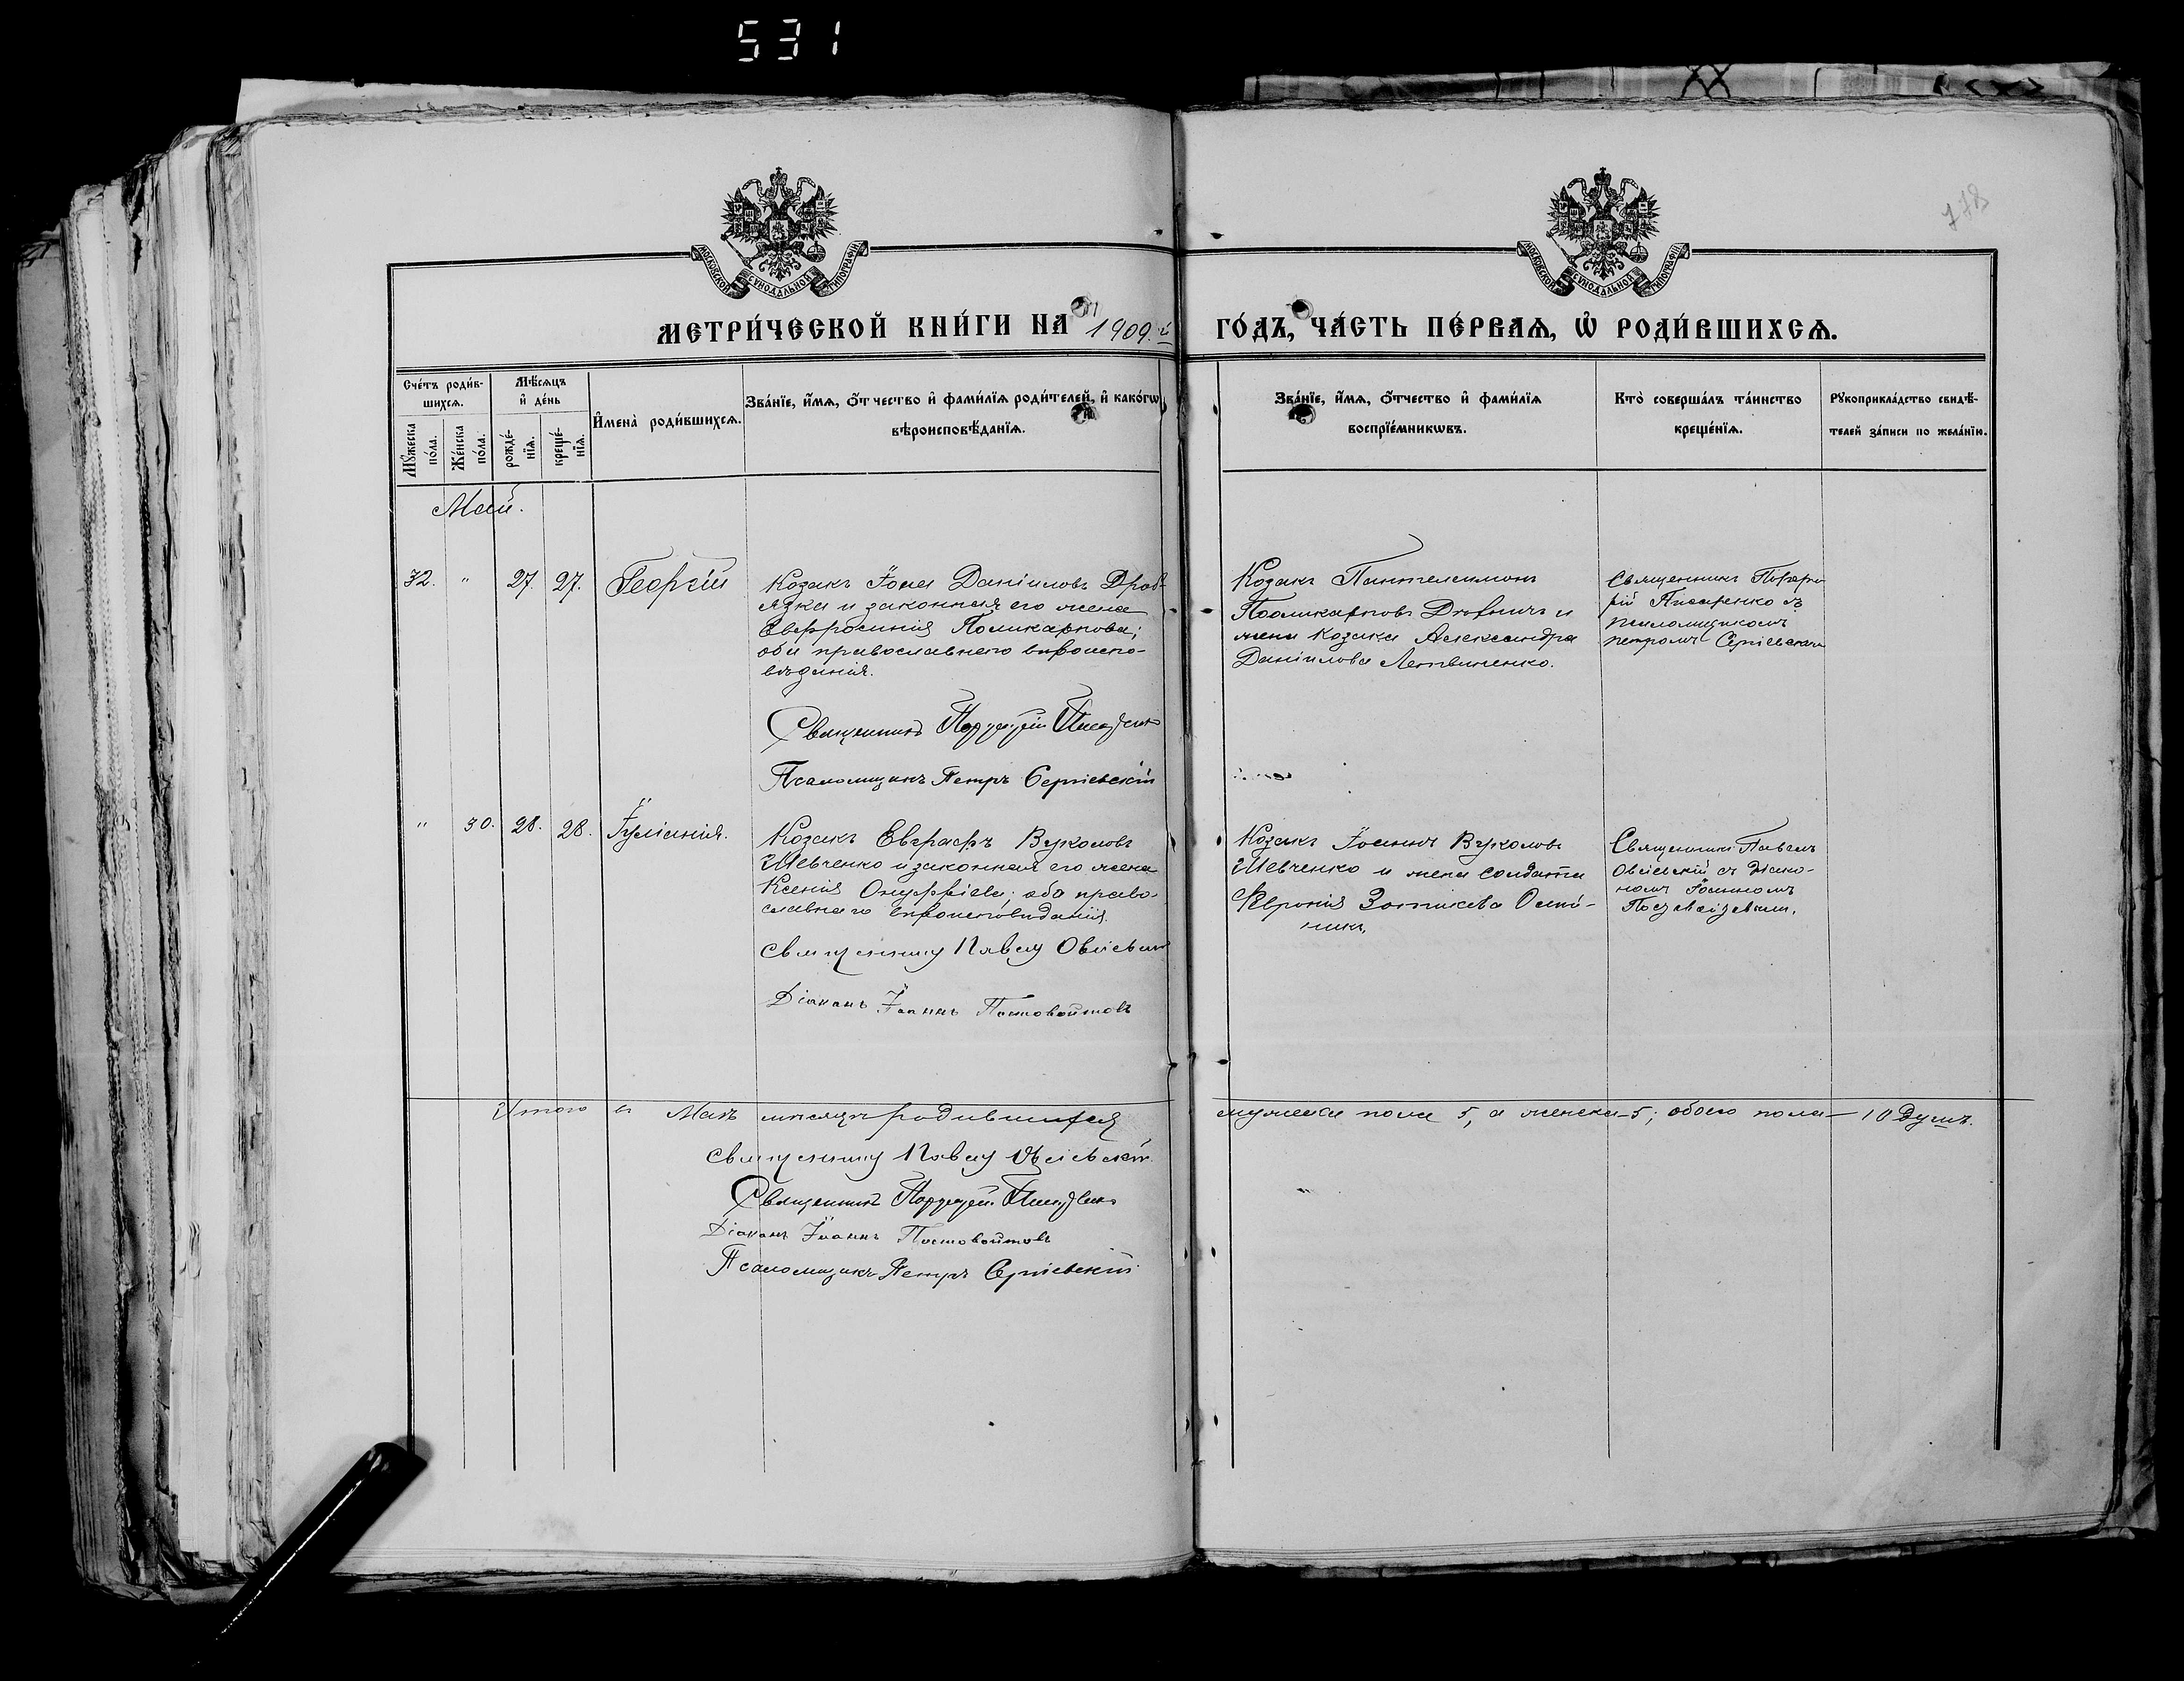 531
778
МОСКОВСКОЙ СѴНОДАЛЬНОЙ ТИПОГРАФІИ
МОСКОВСКОЙ СѴНОДАЛЬНОЙ ТИПОГРАФІИ
МЕТРИ́ЧЕСКОЙ КНИ́ГИ НА 1909.й ГО́ДЪ, ЧА́СТЬ ПЕ́РВАѦ, Ѡ РОДИ́ВШИХСѦ.
Сче́тъ роди́в-
шихсѧ.
Мѣ́сѧцъ
и҆ де́нь
Мꙋ́жеска
по́ла.
Же́нска
по́ла.
рожде́-
нїѧ.
креще́-
нїѧ.
И҆мена̀ роди́вшихсѧ.
Зва́нїе, и҆́мѧ, ѻ҆́тчество и҆ фами́лїѧ роди́телей, и҆ како́гѡ
вѣроисповѣ́данїѧ.
Зва́нїе, и҆́мѧ, ѻ҆́тчество и҆ фами́лїѧ
воспрїе́мникѡвъ.
Кто̀ соверша́лъ та́инство
креще́нїѧ.
Рꙋкоприкла́дство свидѣ́-
телей за́писи по жела́нїю.
Май.
32. " 27. 27. Георгій
Козакъ Іона Даніиловъ Дроб-
язка и законная его жена
Евфросинія Поликарпова;
оба православнаго вѣроиспо-
вѣданія.
Священникъ Порфирій Писаренко
Псаломщикъ Петръ Сергіевскій
Козакъ Пантелеимонъ
Поликарповъ и
жена козака Александра
Даніилова Литвиненко.
Священникъ Порфи-
рій Писаренко съ
псаломщикомъ
Петромъ Сергіевскимъ
" 30. 28. 28. Іуліанія.
Козакъ Евграфъ Вуколовъ
Шевченко и законная его жена
Ксенія Онуфріева; оба право-
славнаго вѣроисповѣданія.
Священникъ Павелъ Овсіевскій
Діаконъ Іоаннъ Постовойтовъ
Козакъ Іоаннъ Вуколовъ
Шевченко и жена солдата
Феvронія Зотикова
Священникъ Павелъ
Овсіевскій съ Діако-
номъ Іоанномъ
Постовойтовымъ.
Итого въ Маѣ мѣсяцѣ родившихся мужеска пола 5, а женска — 5; обоего пола — 10 душъ.
Священникъ Павелъ Овсіевскій
Священникъ Порфирій Писаренко
Діаконъ Іоаннъ Постовойтовъ
Псаломщикъ Петръ Сергіевскій